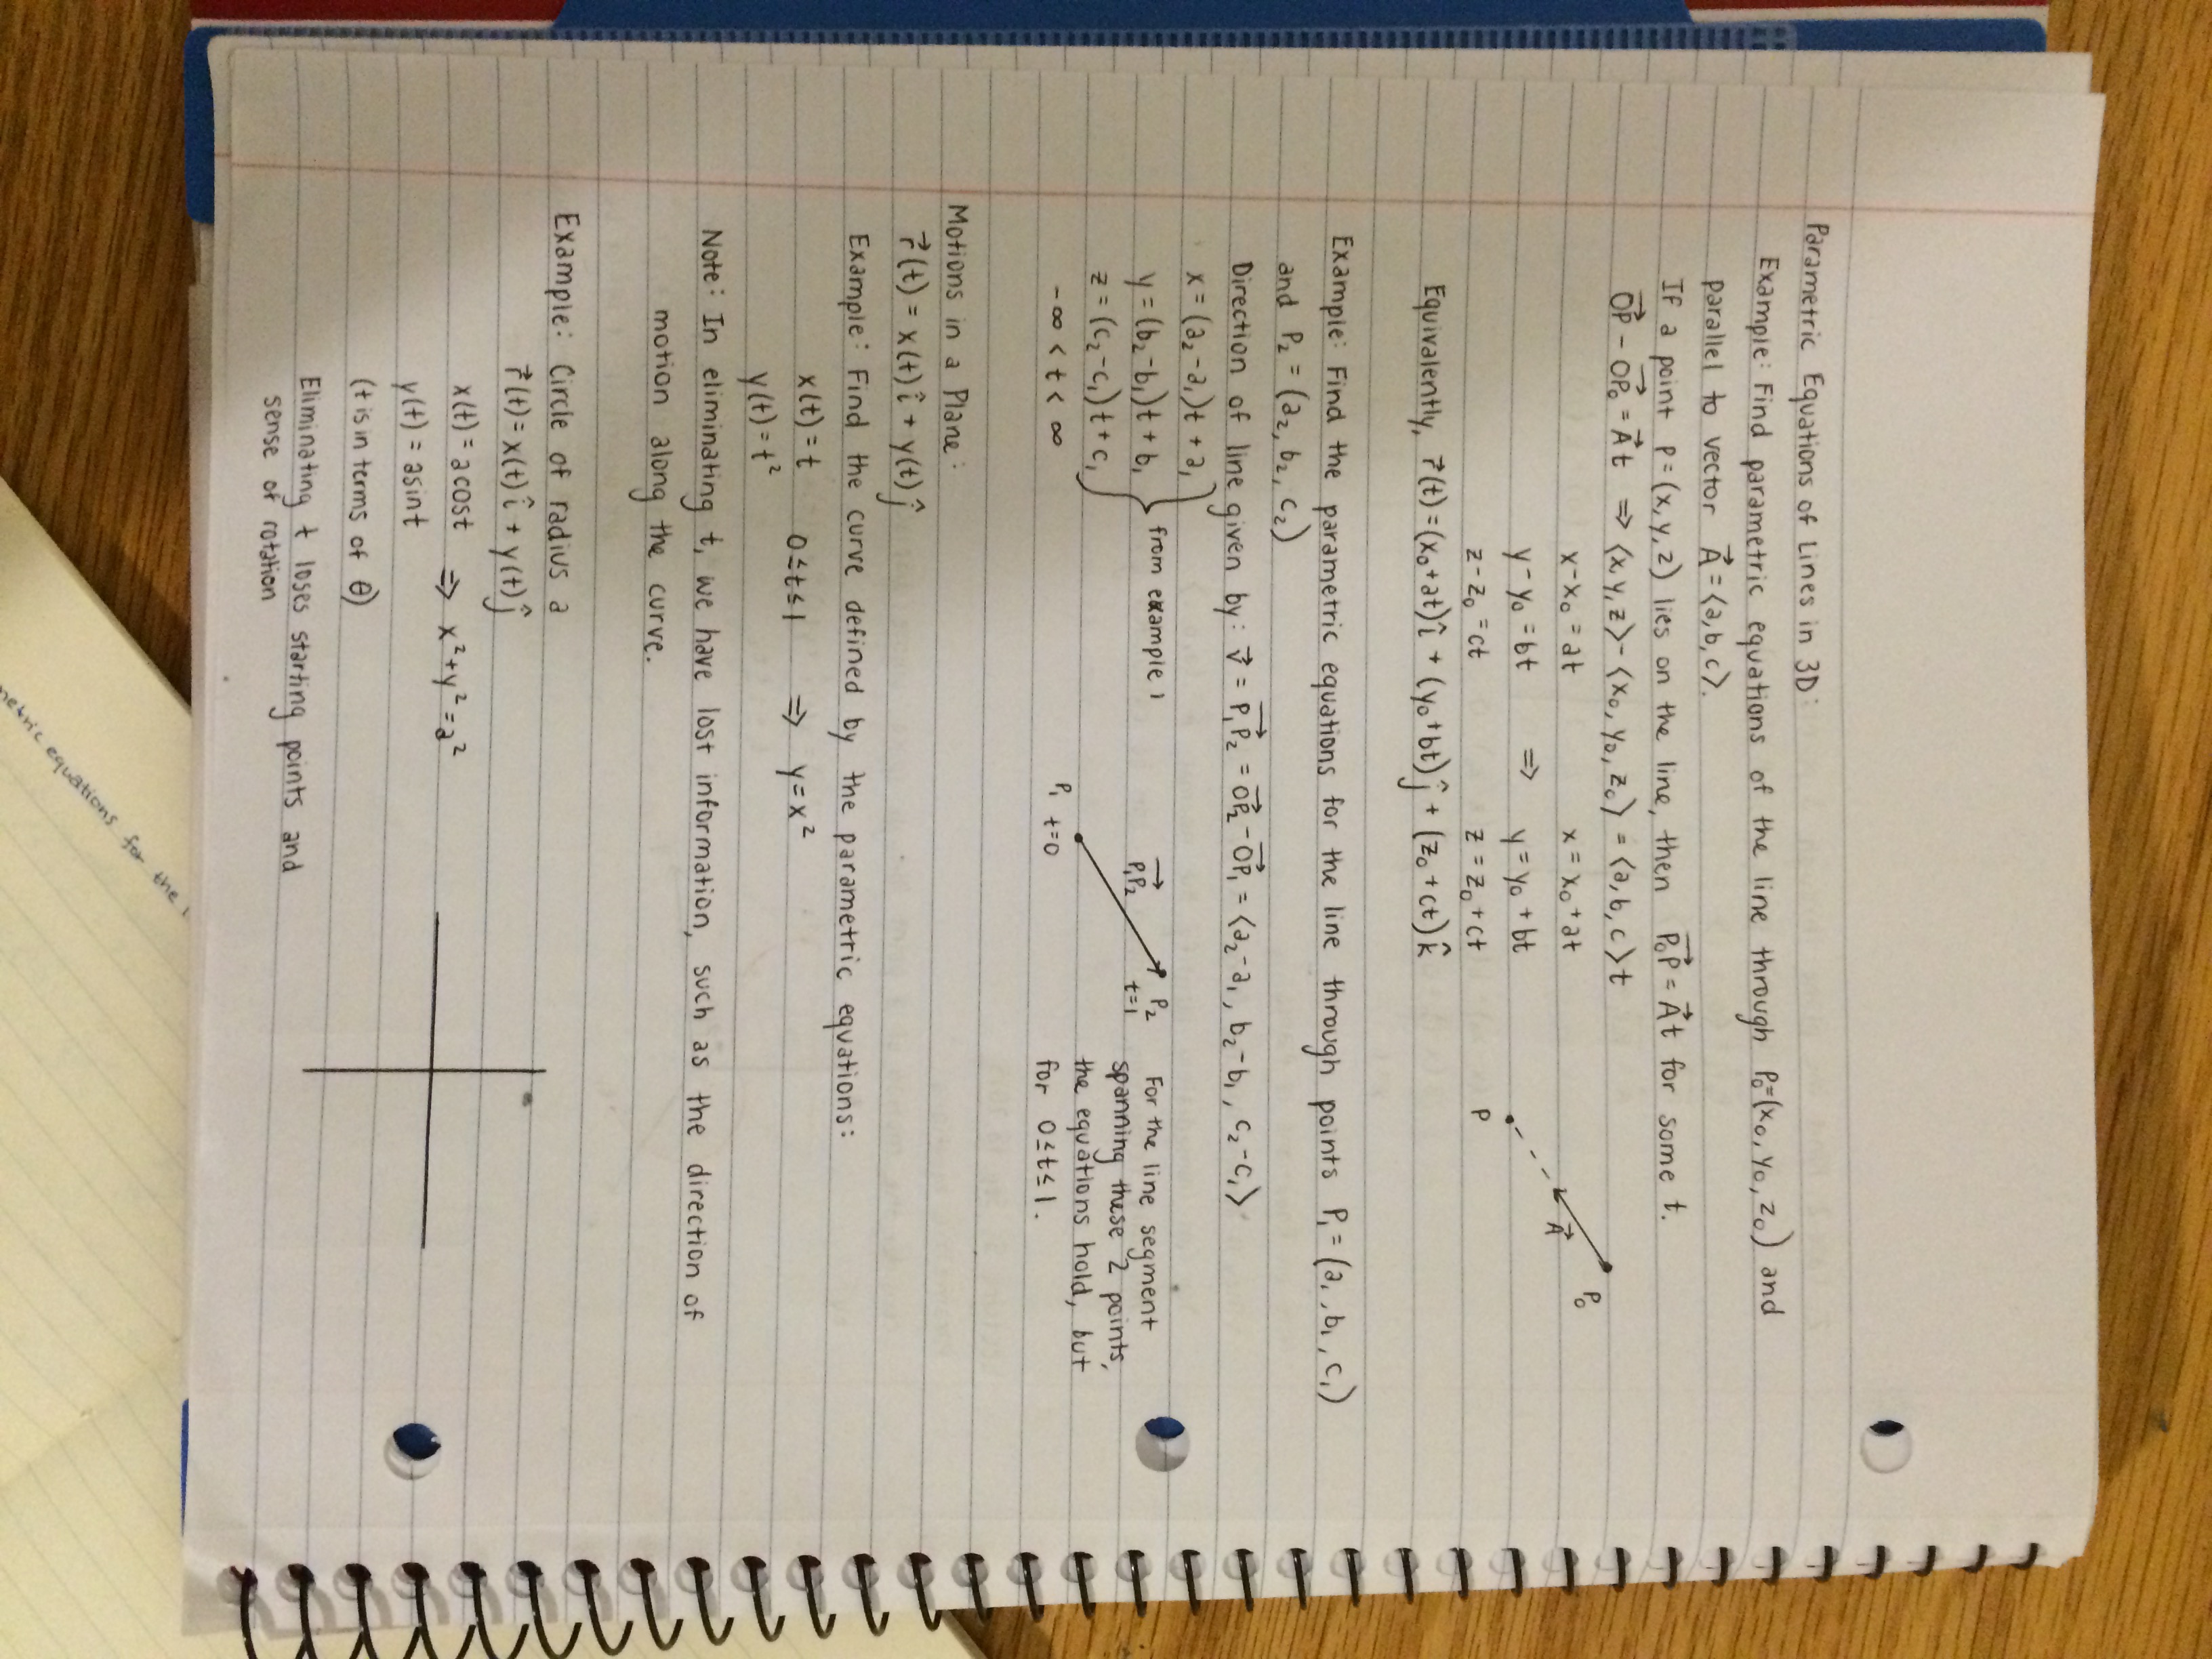 Parametric Equations of Lines in 3D:
Example: Find parametric equations of the line through P₀=(x₀, y₀, z₀) and
parallel to vector A⃗ = ⟨a, b, c⟩.
If a point p=(x, y, z) lies on the line, then P₀P⃗ = A⃗t for some t.
OP⃗ - OP₀⃗ = A⃗t ⇒ ⟨x, y, z⟩ - ⟨x₀, y₀, z₀⟩ = ⟨a, b, c⟩t
x-x₀ = at x = x₀+at
y-y₀ = bt ⇒ y = y₀+bt
z-z₀ = ct z = z₀+ct
P₀
A⃗
P
Equivalently, r⃗(t) = (x₀+at)î + (y₀+bt)ĵ + (z₀+ct)k̂
Example: Find the parametric equations for the line through points P₁ = (a₁, b₁, c₁)
and P₂ = (a₂, b₂, c₂)
Direction of line given by: v⃗ = P₁P₂⃗ = OP₂⃗ - OP₁⃗ = ⟨a₂-a₁, b₂-b₁, c₂-c₁⟩
x = (a₂-a₁)t + a₁
y = (b₂-b₁)t + b₁ } from example 1
z = (c₂-c₁)t + c₁
-∞ < t < ∞
P₂
t=1
P₁P₂⃗
P₁ t=0
For the line segment
spanning these 2 points,
the equations hold, but
for 0≤t≤1.
Motions in a Plane:
r⃗(t) = x(t)î + y(t)ĵ
Example: Find the curve defined by the parametric equations:
x(t) = t 0≤t≤1 ⇒ y=x²
y(t) = t²
Note: In eliminating t, we have lost information, such as the direction of
motion along the curve.
Example: Circle of radius a
r⃗(t) = x(t)î + y(t)ĵ
x(t) = acost ⇒ x²+y²=a²
y(t) = asint
(t is in terms of θ)
Eliminating t loses starting points and
sense of rotation
metric equations for the